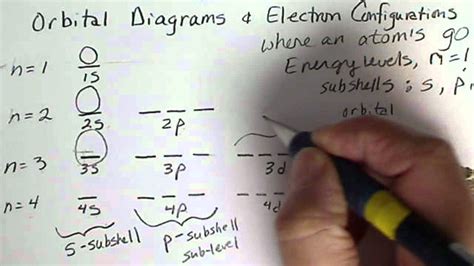 Orbital Diagrams & Electron Configurations
where an atom's go
Energy levels, n=1
subshells : s, p,
orbital
n=1
1s
n=2
2s 2p
n=3
3s 3p 3d
n=4
4s 4p 4d
s-subshell
p-subshell
sub-level